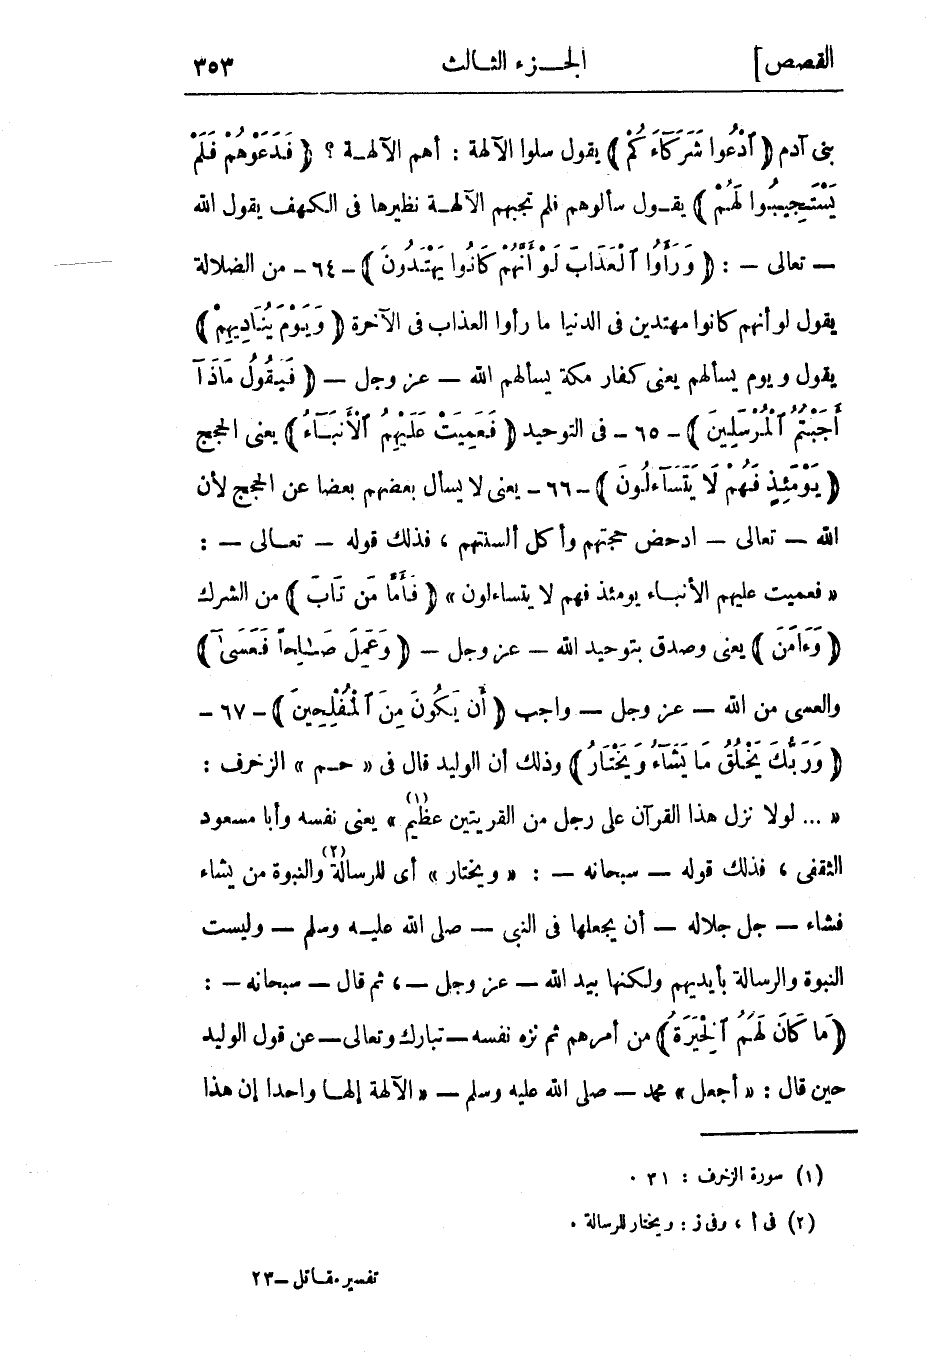 القصص] الجـــزء الثـالث ٣٥٣
بنى آدم ﴿ ٱدْعُوا شُرَكَآءَكُمْ ﴾ يقول سلوا الآلهة : أهم الآلهـة ؟ ﴿ فَدَعَوْهُمْ فَلَمْ
يَسْتَجِيبُوا لَهُمْ ﴾ يقـول سألوهم فلم تجبهم الآلهـة نظيرها فى الكهف يقول الله
— تعالى — : ﴿ وَرَأَوُا ٱلْعَذَابَ لَوْ أَنَّهُمْ كَانُوا يَهْتَدُونَ ﴾ - ٦٤ - من الضلالة
يقول لو أنهم كانوا مهتدين فى الدنيا ما رأوا العذاب فى الآخرة ﴿ وَيَوْمَ يُنَادِيهِمْ ﴾
يقول ويوم يسألهم يعنى كفار مكة يسألهم الله — عز وجل — ﴿ فَيَقُولُ مَاذَآ
أَجَبْتُمُ ٱلْمُرْسَلِينَ ﴾ - ٦٥ - فى التوحيد ﴿ فَعَمِيَتْ عَلَيْهِمُ ٱلْأَنبَـآءُ ﴾ يعنى الحجج
﴿ يَوْمَئِذٍ فَهُمْ لَا يَتَسَآءَلُونَ ﴾ - ٦٦ - يعنى لا يسأل بعضهم بعضا عن الحجج لأن
الله — تعالى — ادحض حجتهم وأكل ألسنتهم ، فذلك قوله — تعـالى — :
« فعميت عليهم الأنبـاء يومئذ فهم لا يتساءلون » ﴿ فَأَمَّا مَن تَابَ ﴾ من الشرك
﴿ وَءَامَنَ ﴾ يعنى وصدق بتوحيد الله — عز وجل — ﴿ وَعَمِلَ صَـٰلِحاً فَعَسَىٰٓ ﴾
والعسى من الله — عز وجل — واجب ﴿ أَن يَكُونَ مِنَ ٱلْمُفْلِحِينَ ﴾ - ٦٧ -
﴿ وَرَبُّكَ يَخْلُقُ مَا يَشَآءُ وَيَخْتَارُ ﴾ وذلك أن الوليد قال فى « حـم » الزخرف :
« ... لولا نزل هذا القرآن على رجل من القريتين عظيم (١) » يعنى نفسه وأبا مسعود
الثقفى ، فذلك قوله — سبحانه — : « ويختار » أى للرسالة (٢) والنبوة من يشاء
فشاء — جل جلاله — أن يجعلها فى النبى — صلى الله عليـه وسلم — وليست
النبوة والرسالة بأيديهم ولكنها بيد الله — عز وجل —، ثم قال — سبحانه — :
﴿ مَا كَانَ لَهُمُ ٱلْخِيَرَةُ ﴾ من أمرهم ثم نزه نفسه — تبارك وتعالى — عن قول الوليد
حين قال : « أجعل » محمد — صلى الله عليه وسلم — « الآلهة إلهـا واحدا إن هذا
(١) سورة الزخرف : ٣١ .
(٢) فى أ ، وفى ز : ويختار للرسالة .
تفسير مقـاتل — ٢٣